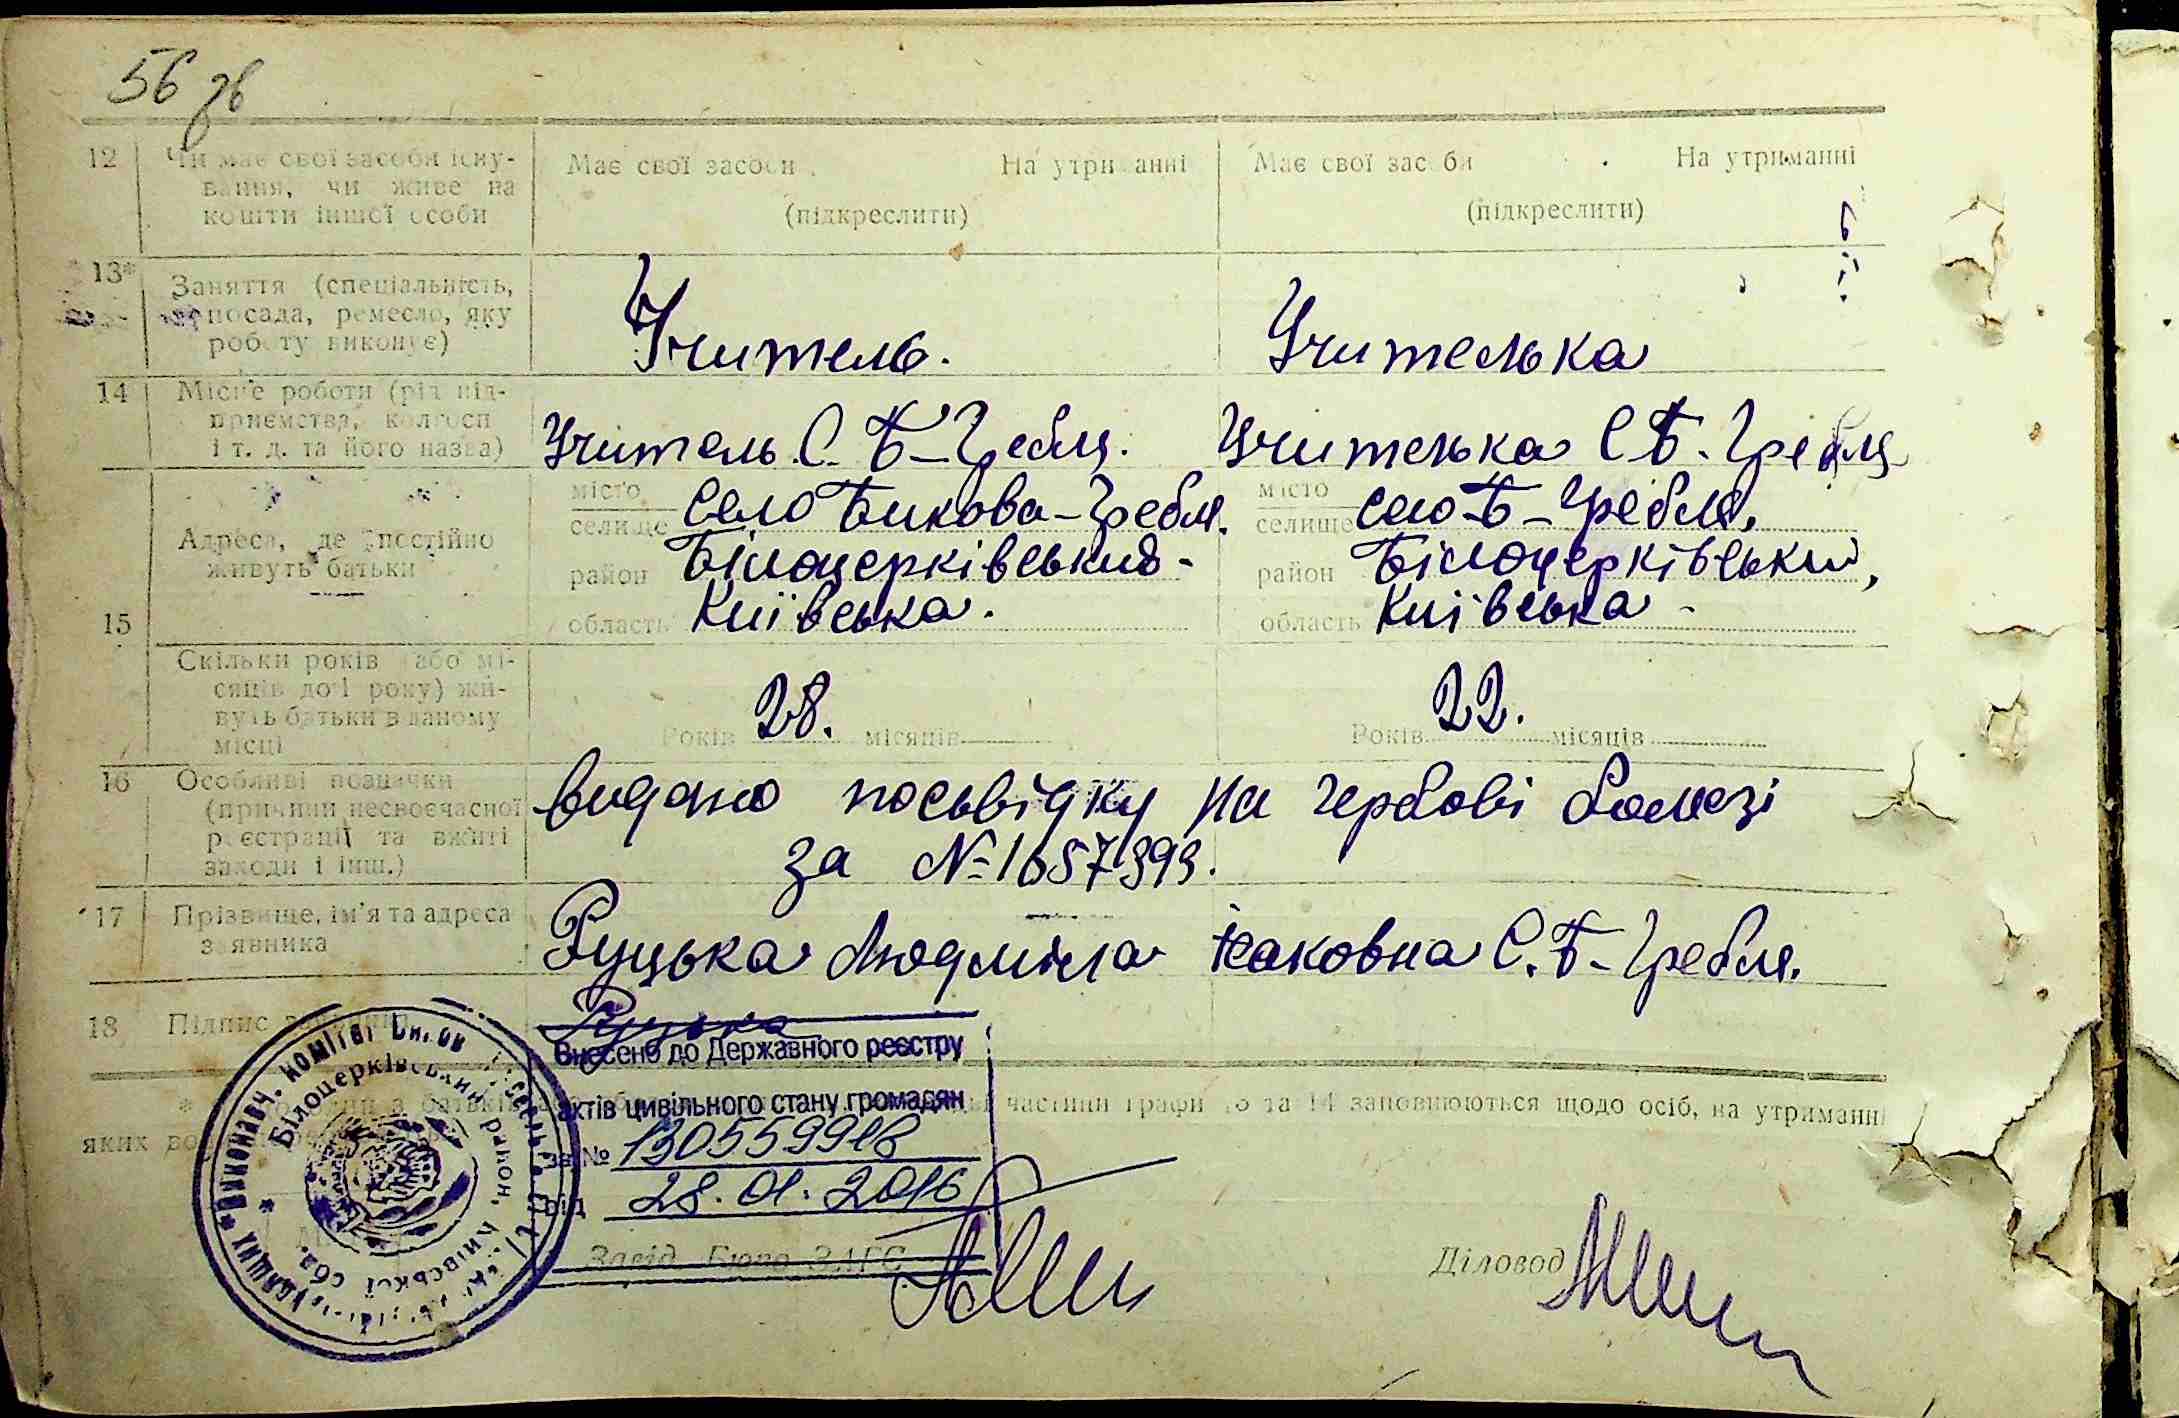 56 зв
12 Чи має свої засоби існу-
вання, чи живе на
кошти іншої особи
Має свої засоби На утриманні
(підкреслити)
Має свої засоби На утриманні
(підкреслити)
13* Заняття (спеціальність,
посада, ремесло, яку
роботу виконує)
Учитель.
Учителька
14 Місце роботи (рід під-
приємства, колгосп
і т. д. та його назва)
Учитель С. Б-Гребл.
Учителька С Б. Гребл
15 Адреса, де постійно
живуть батьки
місто
селище Село Бикова-Гребля.
район Білоцерківський-
область Київська.
місто
селище село Б-Гребля.
район Білоцерківський,
область Київська-
Скільки років (або мі-
сяців до 1 року) жи-
вуть батьки в даному
місці
Років 28. місяців
Років 22. місяців
16 Особливі позначки
(причини несвоєчасної
реєстрації та вжиті
заходи і інш.)
видано посьвідку на гербові бомазі
за №1657393.
17 Прізвище, ім'я та адреса
заявника
Руцька Людміла Ісаковна С. Б-Гребля.
18 Підпис
Руцька
Внесено до Державного реєстру
актів цивільного стану громадян
за № 130559918
від 28.01.2016
частини графи 13 та 14 заповнюються щодо осіб, на утриманні
яких
Завід. Бюро ЗАГС
Діловод
Виконавч. комітет
Білоцерківський район, Київської обл.